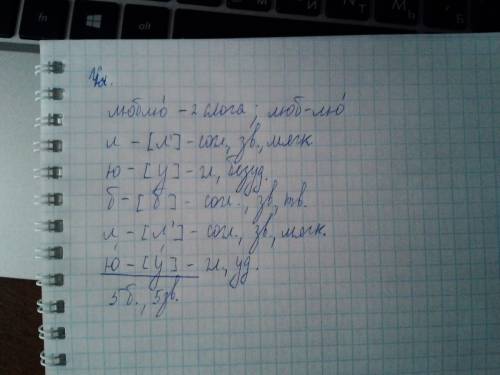 люблю́ – 2 слога; люб-лю́
л – [л'] – согл, зв., мягк
ю – [у] – гл, безуд.
б – [б] – согл., зв, тв.
л – [л'] – согл., зв., мягк.
ю́ – [у́] – гл, уд.
5б., 5зв.
fn
alt